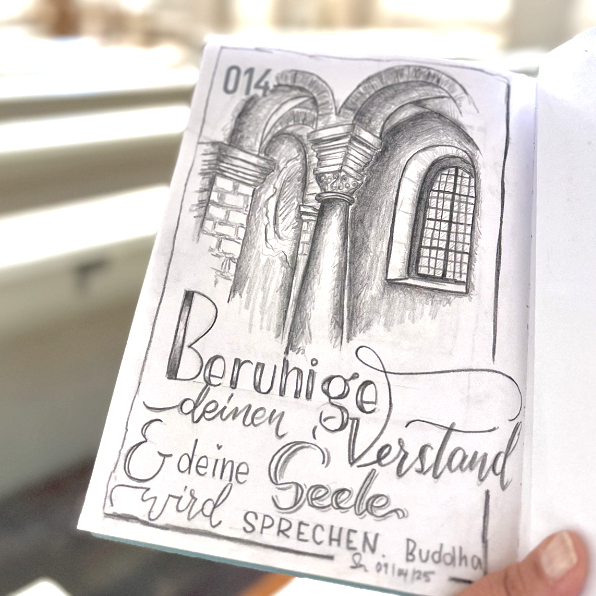 014
Beruhige
deinen Verstand
& deine Seele
wird SPRECHEN. Buddha
01/04/25